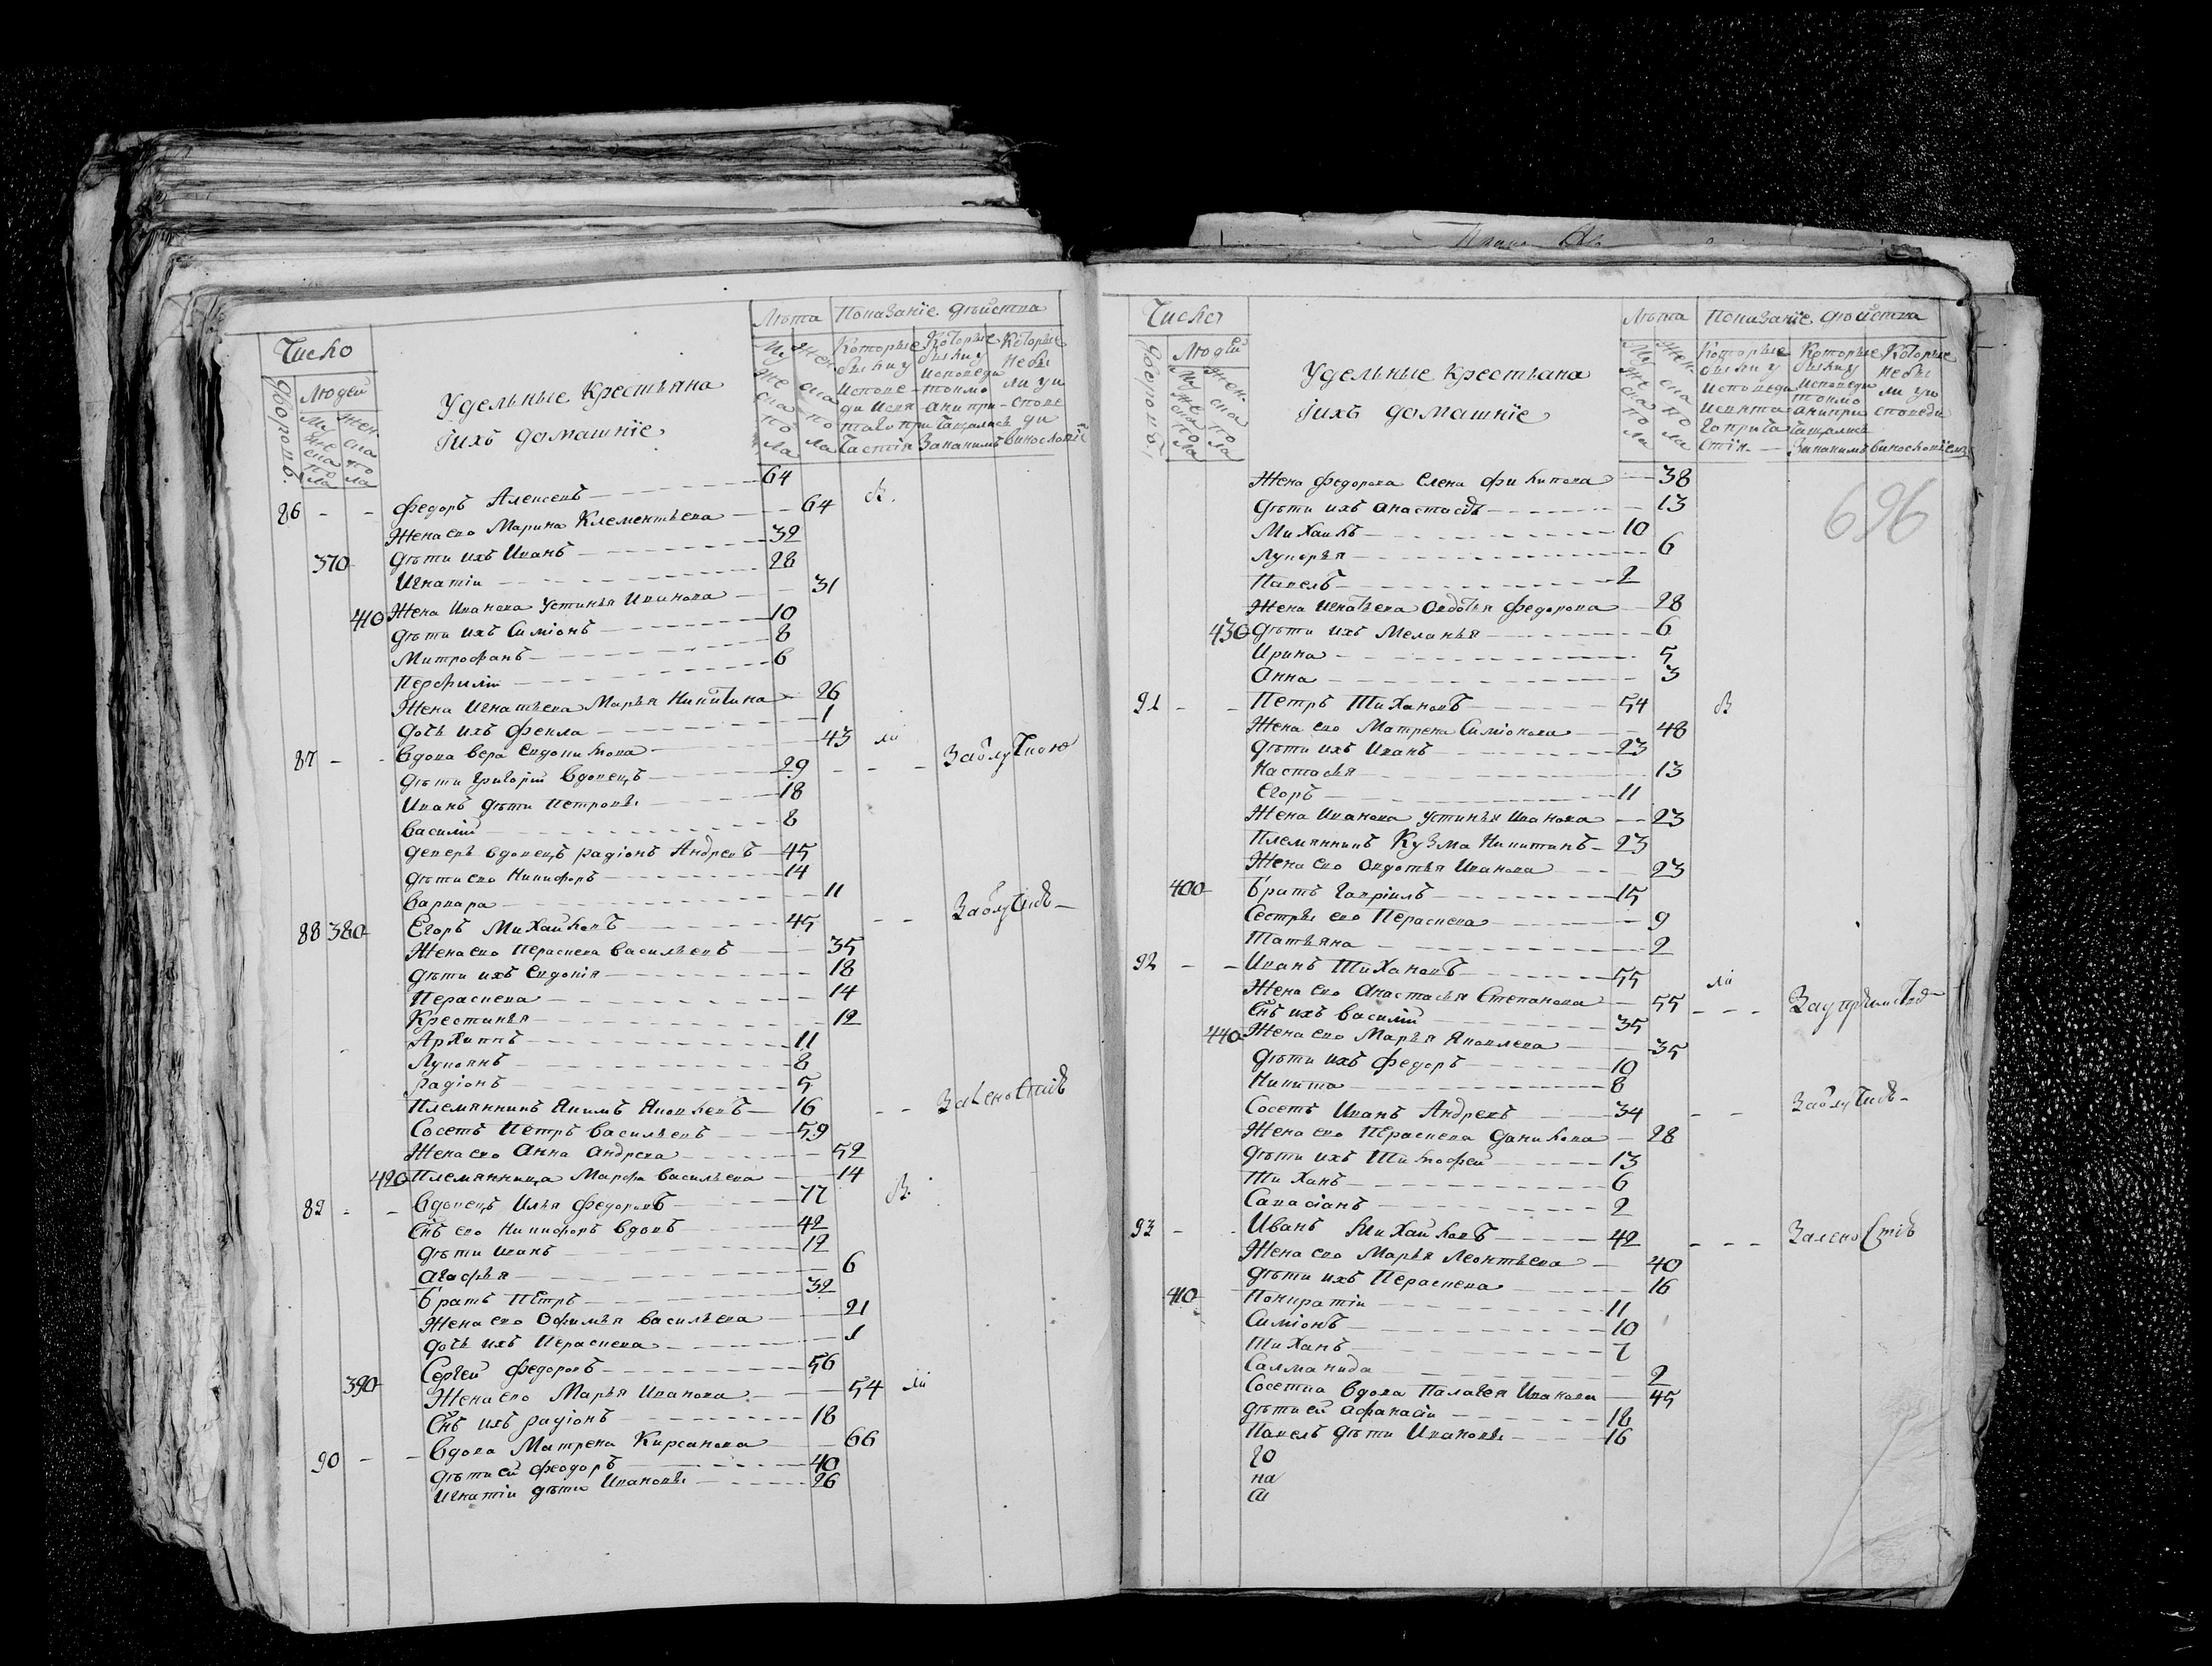 Число
Людей
Дворовъ
Мужеска пола
Женска пола
Удельные крестьяна
іихъ домашніе
Лѣта
Мужеска пола
Женска пола
Показаніе действа
Которые были у исповеди и святаго причастія
Которые были у исповеди токмо а ни причащались за какимъ винословіемъ
Которые не были у исповеди
86 - - Федоръ Алексевъ 64
Жена ево Марина Клементьева 64
370 Дѣти ихъ Иванъ 32
Игнатіи 28
410 Жена Иванова Устинья Иванова 31
Дѣти ихъ Симіонъ 10
Митрофанъ 8
Перфиліи 6
Жена Игнатьева Марья Никитина 26
Дочь ихъ Фекла 1
87 - - Вдова Вера Евдокимова 43
Дѣти Григорій вдовецъ 29 - - - За отлучкою
Иванъ дѣти Петровы 18
Василій 8
Деверь вдовецъ Радіонъ Андревъ 45
Дѣти ево Никифоръ 14
Варвара 11
88 380 Егоръ Михайловъ 45 - -
Жена ево Пераскева Васильевъ 35
Дѣти ихъ Евдокія 18
Пераскева 14
Крестинья 12
Архиппъ 11
Лукоянъ 8
Радіонъ 5
Племянникъ Якимъ Яковлевъ 16 - -
Сосетъ Петръ Васильевъ 59
Жена ево Анна Андрева 52
420 Племянница Марфа Васильева 14
89 - - Вдовецъ Илья Федоровъ 77
Снъ ево Никифоръ вдовъ 42
Дѣти Иванъ 12
Агафья 6
Братъ Петръ 32
Жена ево Офимья Васильева 21
Дочь ихъ Пераскева 1
Сергей Федоровъ 56
390 Жена ево Марья Иванова 54
Снъ ихъ Радіонъ 18
90 - - Вдова Матрена Кирсанова 66
Дѣти ей Феодоръ 40
Игнатіи дѣти Ивановы 26
Число
Людей
Дворовъ
Мужеска пола
Женска пола
Удельные крестьана
іихъ домашніе
Лѣта
Мужеска пола
Женска пола
Показаніе действа
Которые были у исповеди и святаго причастія
Которые были у исповеди токмо а ни причащались за какимъ винословіемъ
Которые не были у исповеди
696
Жена Федорова Елена Филипова 38
Дѣти ихъ Анастасія 13
Михаилъ 10
Лукерья 6
Павелъ 2
Жена Игнатьева Овдотья Федорова 28
430 Дѣти ихъ Меланья 6
Ирина 5
Анна 3
91 - - Петръ Тихановъ 54
Жена ево Матрена Симіонова 48
Дѣти ихъ Иванъ 23
Настасья 13
Егоръ 11
Жена Иванова Устинья Иванова 23
Племянникъ Кузма Никитинъ 23
Жена ево Овдотья Иванова 23
400 Братъ Гавріилъ 15
Сестры ево Пераскева 9
Татьяна 2
92 - - Иванъ Тихановъ 55
Жена ево Анастасья Степанова 55
Снъ ихъ Василій 35 - - -
440 Жена ево Марья Яковлева 35
Дѣти ихъ Федоръ 10
Никита 8
Сосетъ Иванъ Андревъ 34 - -
Жена ево Пераскева Данилова 28
Дѣти ихъ Тимофей 13
Тиханъ 6
Савасіанъ 2
93 - - Иванъ Михайловъ 42 - - -
Жена ево Марья Леонтьева 40
Дѣти ихъ Пераскева 16
410 Понкратіи 11
Симіонъ 10
Тиханъ 7
Салманида 2
Сосетка вдова Палагея Иванова 45
Дѣти ей Афанасіи 18
Павелъ дѣти Ивановы 16
го
на